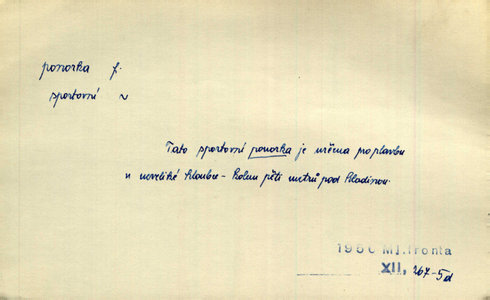 ponorka f.
sportovní ~
Tato sportovní ponorka je určena pro plavbu
v neveliké hloubce - kolem pěti metrů pod hladinou.
1956 Mj.fronta
XII, 267-5d